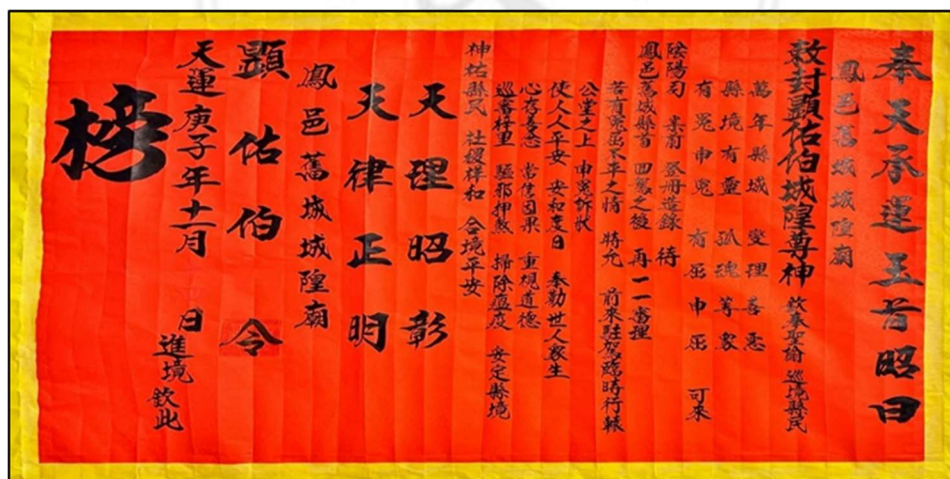 奉天承運玉旨昭曰
鳳邑舊城城隍廟
敕封顯佑伯城隍尊神 欽奉聖諭 巡境縣民
萬年縣城 燮理善惡
縣境有靈 孤魂等眾
有冤申冤 有屈申屈 可來
陰陽司 案前 登冊造錄 待
鳳邑舊城縣省 回鸞之後 再一一審理
若有冤屈不平之情 將允 前來駐駕臨時行轅
公堂之上 申冤訴狀
使人人平安 安和度日 奉勸世人眾生
心存善念 常信因果 重視道德
巡審梓里 驅邪押煞 掃除瘟疫 安定縣境
神祐縣民 社稷祥和 合境平安
天理昭彰
天律正明
鳳邑舊城城隍廟
顯佑伯 令
天運庚子年十一月 日進境 欽此
榜